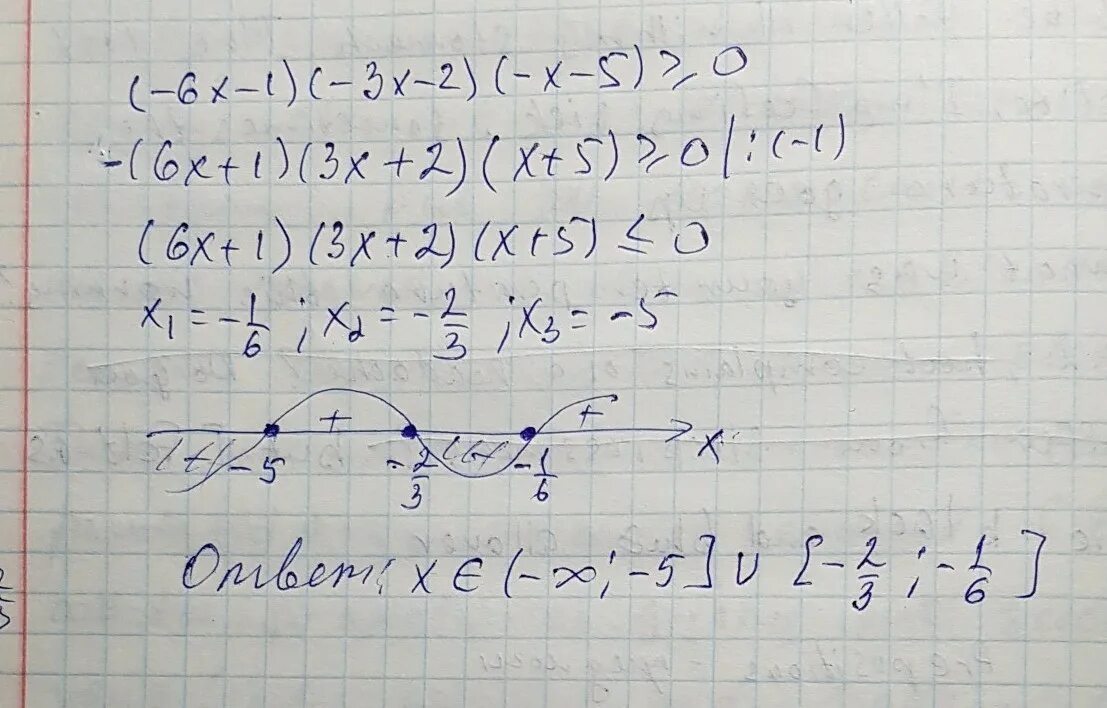 (-6x-1)(-3x-2)(-x-5)≥0
-(6x+1)(3x+2)(x+5)≥0|:(-1)
(6x+1)(3x+2)(x+5)≤0
x₁=-1/6; x₂=-2/3; x₃=-5
+ +
-5 -2/3 -1/6 x
Ответ: x∈(-∞;-5]∪[-2/3;-1/6]